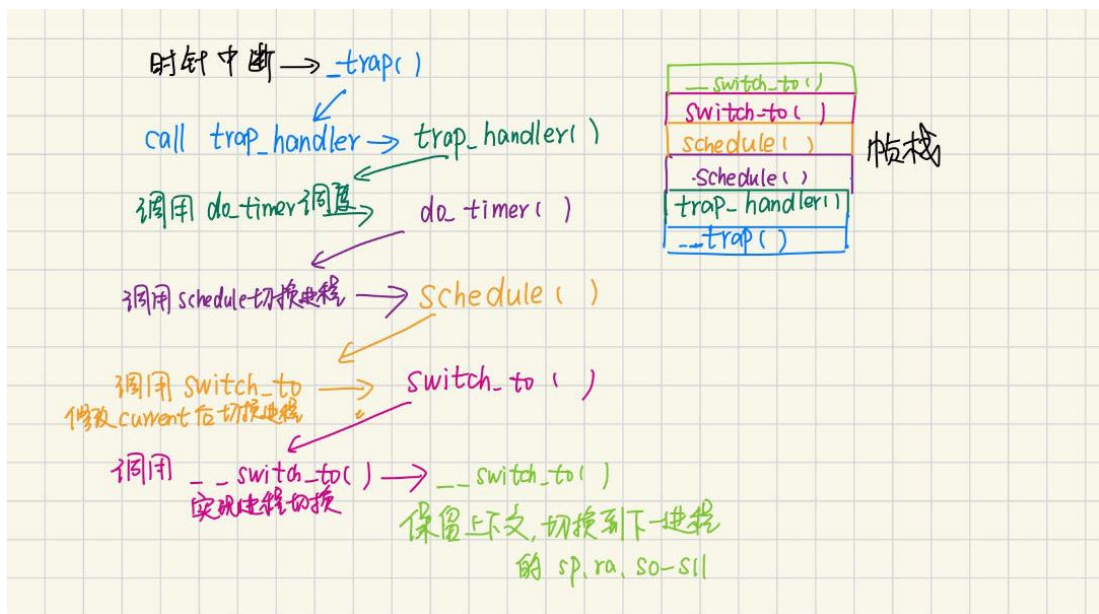 时钟中断 → _trap()
call trap_handler → trap_handler()
调用 do_timer调度 → do_timer()
调用schedule切换进程 → schedule()
调用 switch_to → switch_to()
修改current后切换进程
调用 __switch_to() → __switch_to()
实现进程切换
保留上下文,切换到下一进程
的 sp, ra, s0-s11
__switch_to()
switch_to()
schedule()
schedule()
trap_handler()
__trap()
帧栈